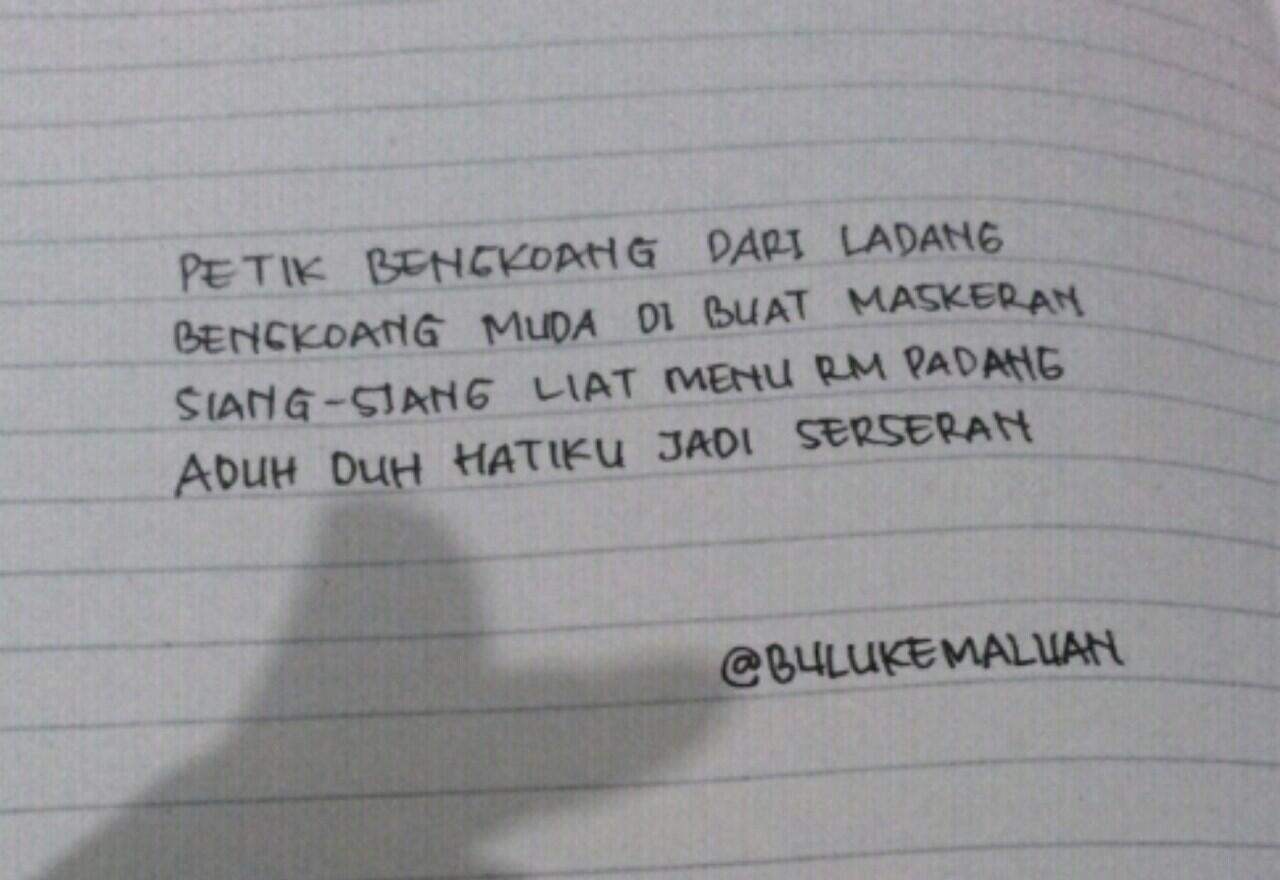 PETIK BENGKOANG DARI LADANG
BENGKOANG MUDA DI BUAT MASKERAN
SIANG-SIANG LIAT MENU RM PADANG
ADUH DUH HATIKU JADI SERSERAN
@BULUKEMALUAN